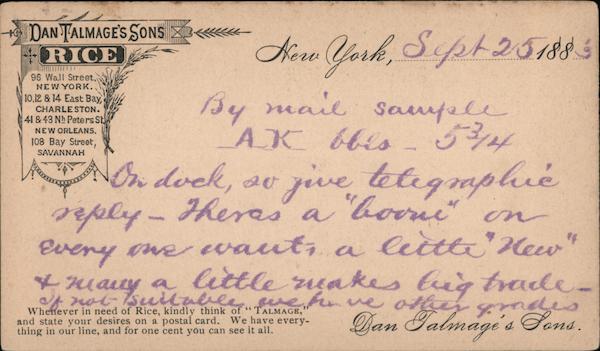 DAN TALMAGE'S SONS
RICE
96 Wall Street,
NEW YORK.
10, 12 & 14 East Bay,
CHARLESTON.
41 & 43 Nh Peters St
NEW ORLEANS.
108 Bay Street,
SAVANNAH
New York, Sept 25 188
By mail sample
AK bbls - 5 3/4
On dock, so give telegraphic
reply - Theres a "boom" on
Every one wants a little "New"
& many a little makes big trade -
If not suitable, we have other grades
Whenever in need of Rice, kindly think of "TALMAGE,"
and state your desires on a postal card. We have every-
thing in our line, and for one cent you can see it all.
Dan Talmage's Sons.